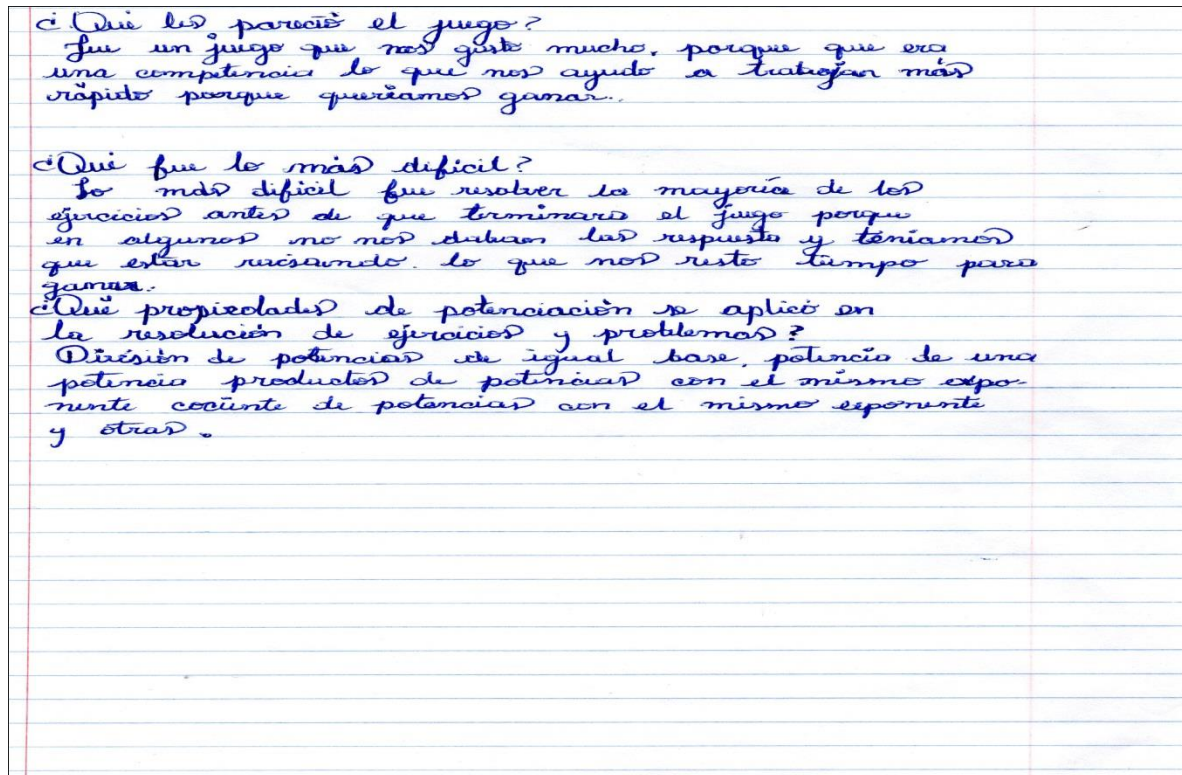 ¿Qué les pareció el juego?
Fue un juego que nos gusto mucho, porque que era
una competencia lo que nos ayudo a trabajar más
rápido porque queríamos ganar..
¿Qué fue lo más difícil?
Lo más difícil fue resolver la mayoría de los
ejercicios antes de que terminara el juego porque
en algunos no nos daban las respuesta y teníamos
que estar revisando. lo que nos resto tiempo para
ganar.
¿Qué propiedades de potenciación se aplicó en
la resolución de ejercicios y problemas?
División de potencias de igual base, potencia de una
potencia productos de potencias con el mismo expo-
nente cociente de potencias con el mismo exponente
y otras.